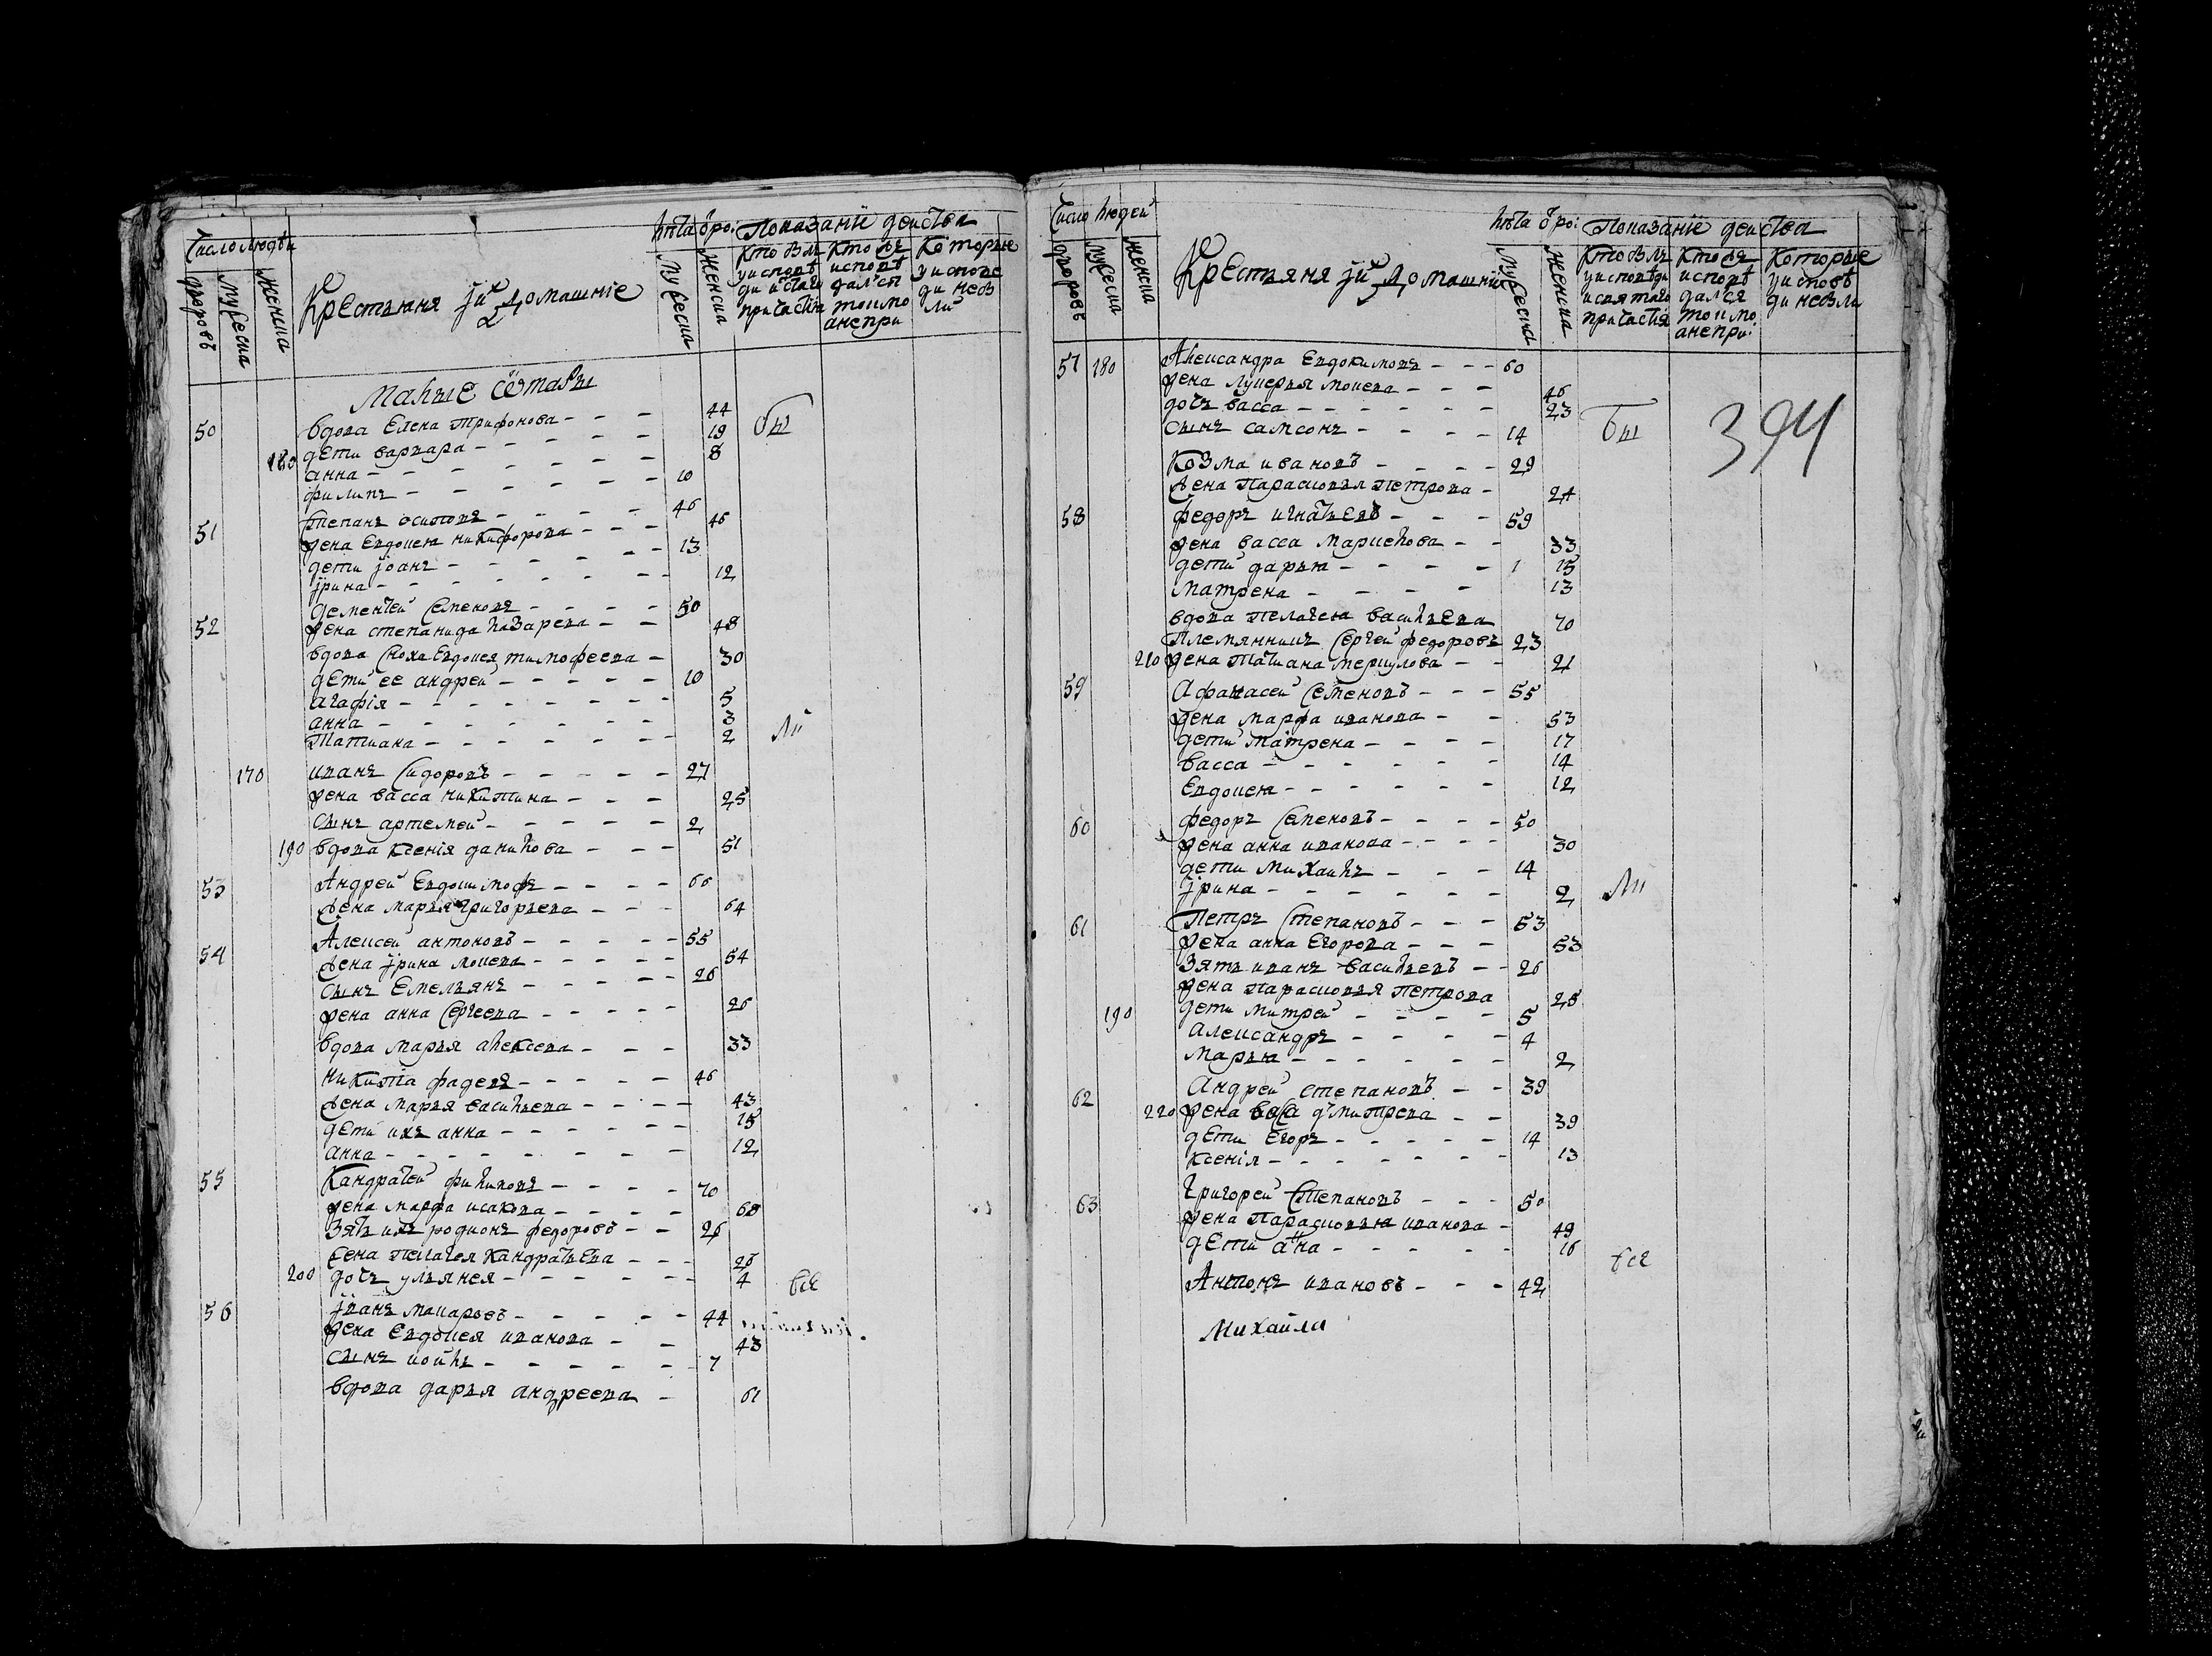 Число людѣи
Лѣта Ѿ ро: Показаниї деиства
дворовъ
мужеска
женска
Крестьяня їих домашніе
мужеска
женска
Кто былъ у исповѣди и стаго причастия
Кто лъ исповѣдался токмо а непри
Которые у исповеди небыли
Малые сётакы
50 вдова Елена Трифонова - - - 44 бы
дети варвара - - - 19
180 анна - - - 8
филипъ - - - 10
51 Степанъ осиповъ - - - 46
жена Евдокея никифорова - - - 46
дети їоанъ - - - 13
їрина - - - 12
52 дементей Семеновъ - - - 50
жена степанида лазарева - - 48
вдова сноха Евдокея тимофеева - 30
дети ее андрей - - - 10
агафія - - - 5
анна - - - 3
Татиана - - - 2 ли
170 иванъ Сидоровъ - - - 27
жена васса никитина - - - 25
сынъ артемей - - - 2
190 вдова ксенія данилова - - - 51
53 Андрей Евдокимофъ - - - 66
жена марья григорьева - - - 64
54 Алексей антоновъ - - - 55
жена їрина мокева - - - 54
сынъ Емельянъ - - - 26
жена анна Сергеева - - - 26
вдова марья алексева - - - 33
никита фадевъ - - - 46
жена марья васильева - - - 43
дети ихъ анна - - - 15
анна - - - 12
55 Кандратей филиповъ - - - 70
жена марфа исакова - - - 68
зять ихъ родионъ федоровъ - - 26
жена пелагея кандратьева - - - 26
200 дочь ульянея - - - 4 все
56 їванъ макаровъ - - - 44
жена евдокея иванова - - 43
сынъ иоилъ - - - 7
вдова дарья андреева - 61
Число людей
Лѣта Ѿ ро: Показаниї деиства
дворовъ
мужеска
женска
Крестьяня їих домашниї
мужеска
женска
Кто былъ у исповѣди и святаго причастия
Кто лъ исповѣдался токмо а непри:
Которые у исповѣди небыли
57 180 Александра Евдокимовъ - - - 60
жена лукерья мокева - - - 46
дочь васса - - - 23
сынъ самсонъ - - - 14 бы
394
Козма ивановъ - - - 29
жена Парасковья петрова - 24
58 федоръ игнатьевъ - - - 59
жена васса маркелова - - 33
дети дарья - - - 1 15
матрена - - - 13
вдова пелагея васильева 70
Племянникъ Сергей федоровъ 23
210 жена татиана меркулова - - 21
59 Афанасей Семеновъ - - - 55
жена марфа иванова - - 53
дети матрена - - - 17
васса - - - 14
Евдокея - - - 12
60 федоръ Семеновъ - - - 50
жена анна иванова - - - 30
дети михаилъ - - - 14
їрина - - - 2 ли
61 Петръ Степановъ - - - 53
жена анна Егорова - - - 53
зять иванъ васильевъ - - 26
жена парасковья петрова 28
190 дети митрей - - - 5
александръ - - - 4
марья - - - 2
62 Андрей степановъ - - 39
220 жена васа дмитрева - - 39
дети Егоръ - - - 14
ксенія - - - 13
63 Григорей Степановъ - - - 50
жена Парасковья иванова - 49
дети анна - - - 16 все
Антонъ ивановъ - - - 42
Михайла